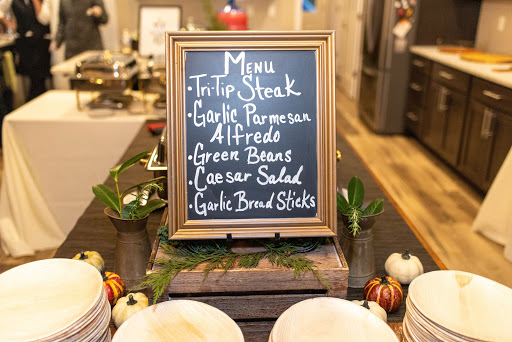 Menu
·Tri-Tip Steak
·Garlic Parmesan
Alfredo
·Green Beans
·Caesar Salad
·Garlic Bread Sticks